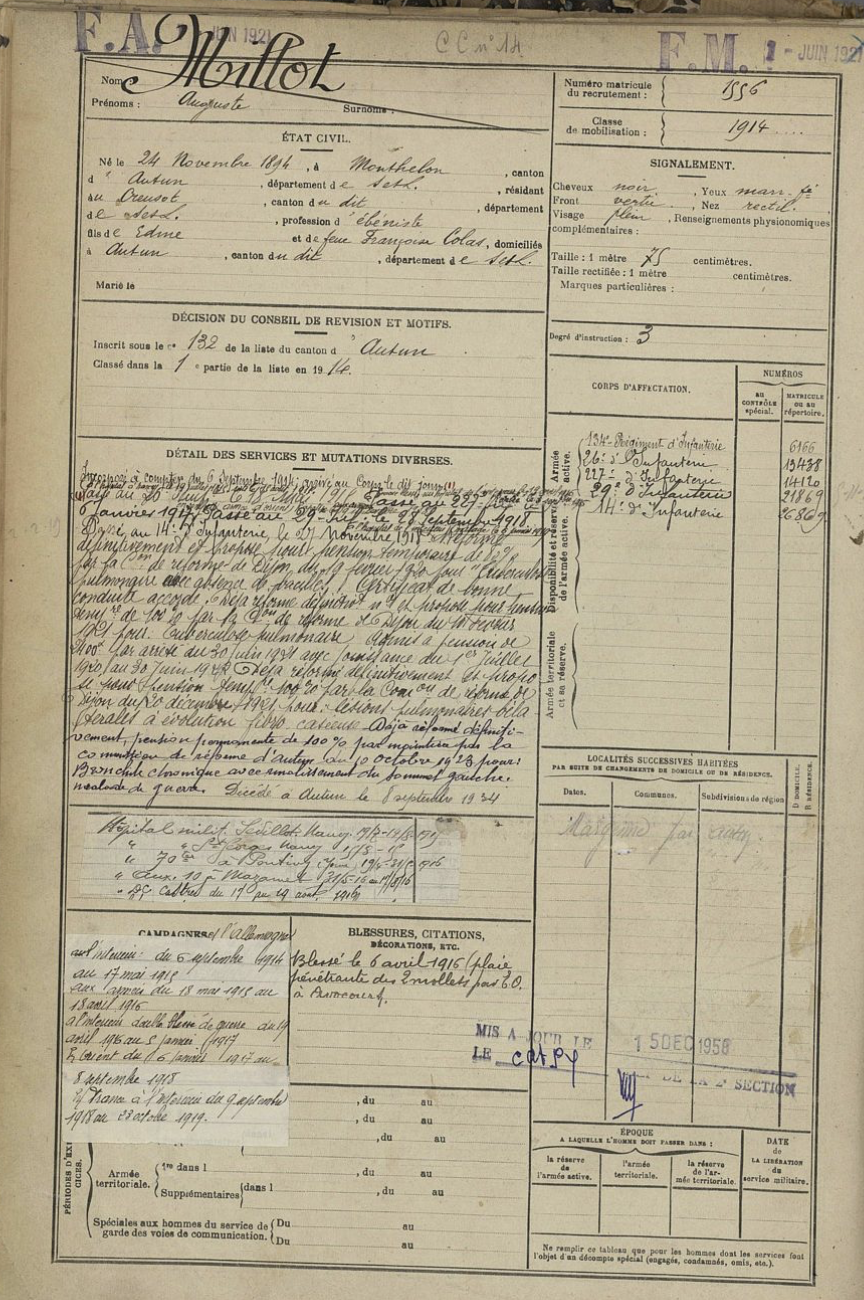 F.A. JUIN 1921
CC n° 14
F.M. 1 - JUIN 1921
Nom : Millot
Prénoms : Auguste Surnoms :
ÉTAT CIVIL.
Né le 24 Novembre 1894, à Monthelon, canton
d'Autun, département de S et L., résidant
au Creusot, canton du dit, département
de S et L., profession d'ébéniste
fils de Edme et de feue Françoise Colas, domiciliés
à Autun, canton du dit, département de S et L.
Marié le
DÉCISION DU CONSEIL DE REVISION ET MOTIFS.
Inscrit sous le n° 132 de la liste du canton d'Autun
Classé dans la 1e partie de la liste en 1914.
Numéro matricule du recrutement : 1556
Classe de mobilisation : 1914
SIGNALEMENT.
Cheveux noir, Yeux marr. fé
Front vertic., Nez rectil.
Visage plein, Renseignements physionomiques
complémentaires :
Taille : 1 mètre 75 centimètres.
Taille rectifiée : 1 mètre centimètres.
Marques particulières :
Degré d'instruction : 3
CORPS D'AFFECTATION.
NUMÉROS
AU CONTRÔLE spécial.
MATRICULE OU AU répertoire.
Armée active.
134e Régiment d'Infanterie 6166
26e d'Infanterie 13438
227e d'Infanterie 14120
29e d'Infanterie 21869
14e d'Infanterie 26869
Disponibilité et réserve de l'armée active.
Armée territoriale et sa réserve.
DÉTAIL DES SERVICES ET MUTATIONS DIVERSES.
Incorporé à compter du 6 Septembre 1914, arrivé au Corps le dit jour (1)
Passé au 26e
6 Janvier 1917. Passé au 29e le 28 Septembre 1918.
Passé au 14e d'Infanterie, le 27 Novembre 1918. Réformé
définitivement et proposé pour pension temporaire de
par la Con de réforme de Dijon du 19 février 1920 pour "Tuberculose
pulmonaire avec absence de bacilles". Certificat de bonne
conduite accordé. Déjà réformé définitivt n° 1 et proposé pour pension
tempre de 100 % par la Con de réforme de Dijon du
1921 pour Tuberculose pulmonaire. Admis à pension de
2400f par arrêté du 30 Juin 1921 avec jouissance du 1er Juillet
1920 au 30 Juin 1922. Déjà réformé définitivement et propo
sé pour pension tempre 100 % par la Comon de réforme de
Dijon du 20 décembre 1921 pour : lésions pulmonaires bila
térales à évolution fibro caséeuse. Déjà réformé définiti-
vement, pension permanente de 100 % par par la
commission de réforme d'Autun du 10 octobre 1923 pour :
Bronchite chronique avec du sommet gauche.
malade de guerre. Décédé à Autun le 8 septembre 1934
Hôpital milit. Sédillot Nancy
" Nancy
" 70 à Pontivy 1916
" Aux. 10 à Mazamet
" Castres du 17 au 19 août 1916
LOCALITÉS SUCCESSIVES HABITÉES
PAR SUITE DE CHANGEMENTS DE DOMICILE OU DE RÉSIDENCE.
Dates. Communes. Subdivisions de région
D. DOMICILE. R. RÉSIDENCE.
par Autun
CAMPAGNES et l'Allemagne
à l'intérieur : du 6 septembre 1914
au 17 mai 1915
aux armées du 18 mai 1915 au
18 avril 1916
à l'intérieur blessé de guerre du 19
avril 1916 au 5 janvier 1917
En Orient du 6 janvier 1917 au
8 septembre 1918
En France à l'intérieur du 9 septembre
1918 au 23 octobre 1919.
BLESSURES, CITATIONS,
DÉCORATIONS, ETC.
Blessé le 6 avril 1916 (plaie
pénétrante des 2 mollets par EO.
à Avocourt.
MIS A JOUR LE 15 DEC 1958
LE
DE LA 2e SECTION
, du au
, du au
, du au
PÉRIODES D'EXERCICES.
Armée territoriale.
1re dans l , du au
Supplémentaires dans l , du au
Spéciales aux hommes du service de garde des voies de communication.
Du au
Du au
ÉPOQUE
A LAQUELLE L'HOMME DOIT PASSER DANS :
la réserve de l'armée active.
l'armée territoriale.
la réserve de l'armée territoriale.
DATE de LA LIBÉRATION du service militaire.
Ne remplir ce tableau que pour les hommes dont les services font
l'objet d'un décompte spécial (engagés, condamnés, omis, etc.).